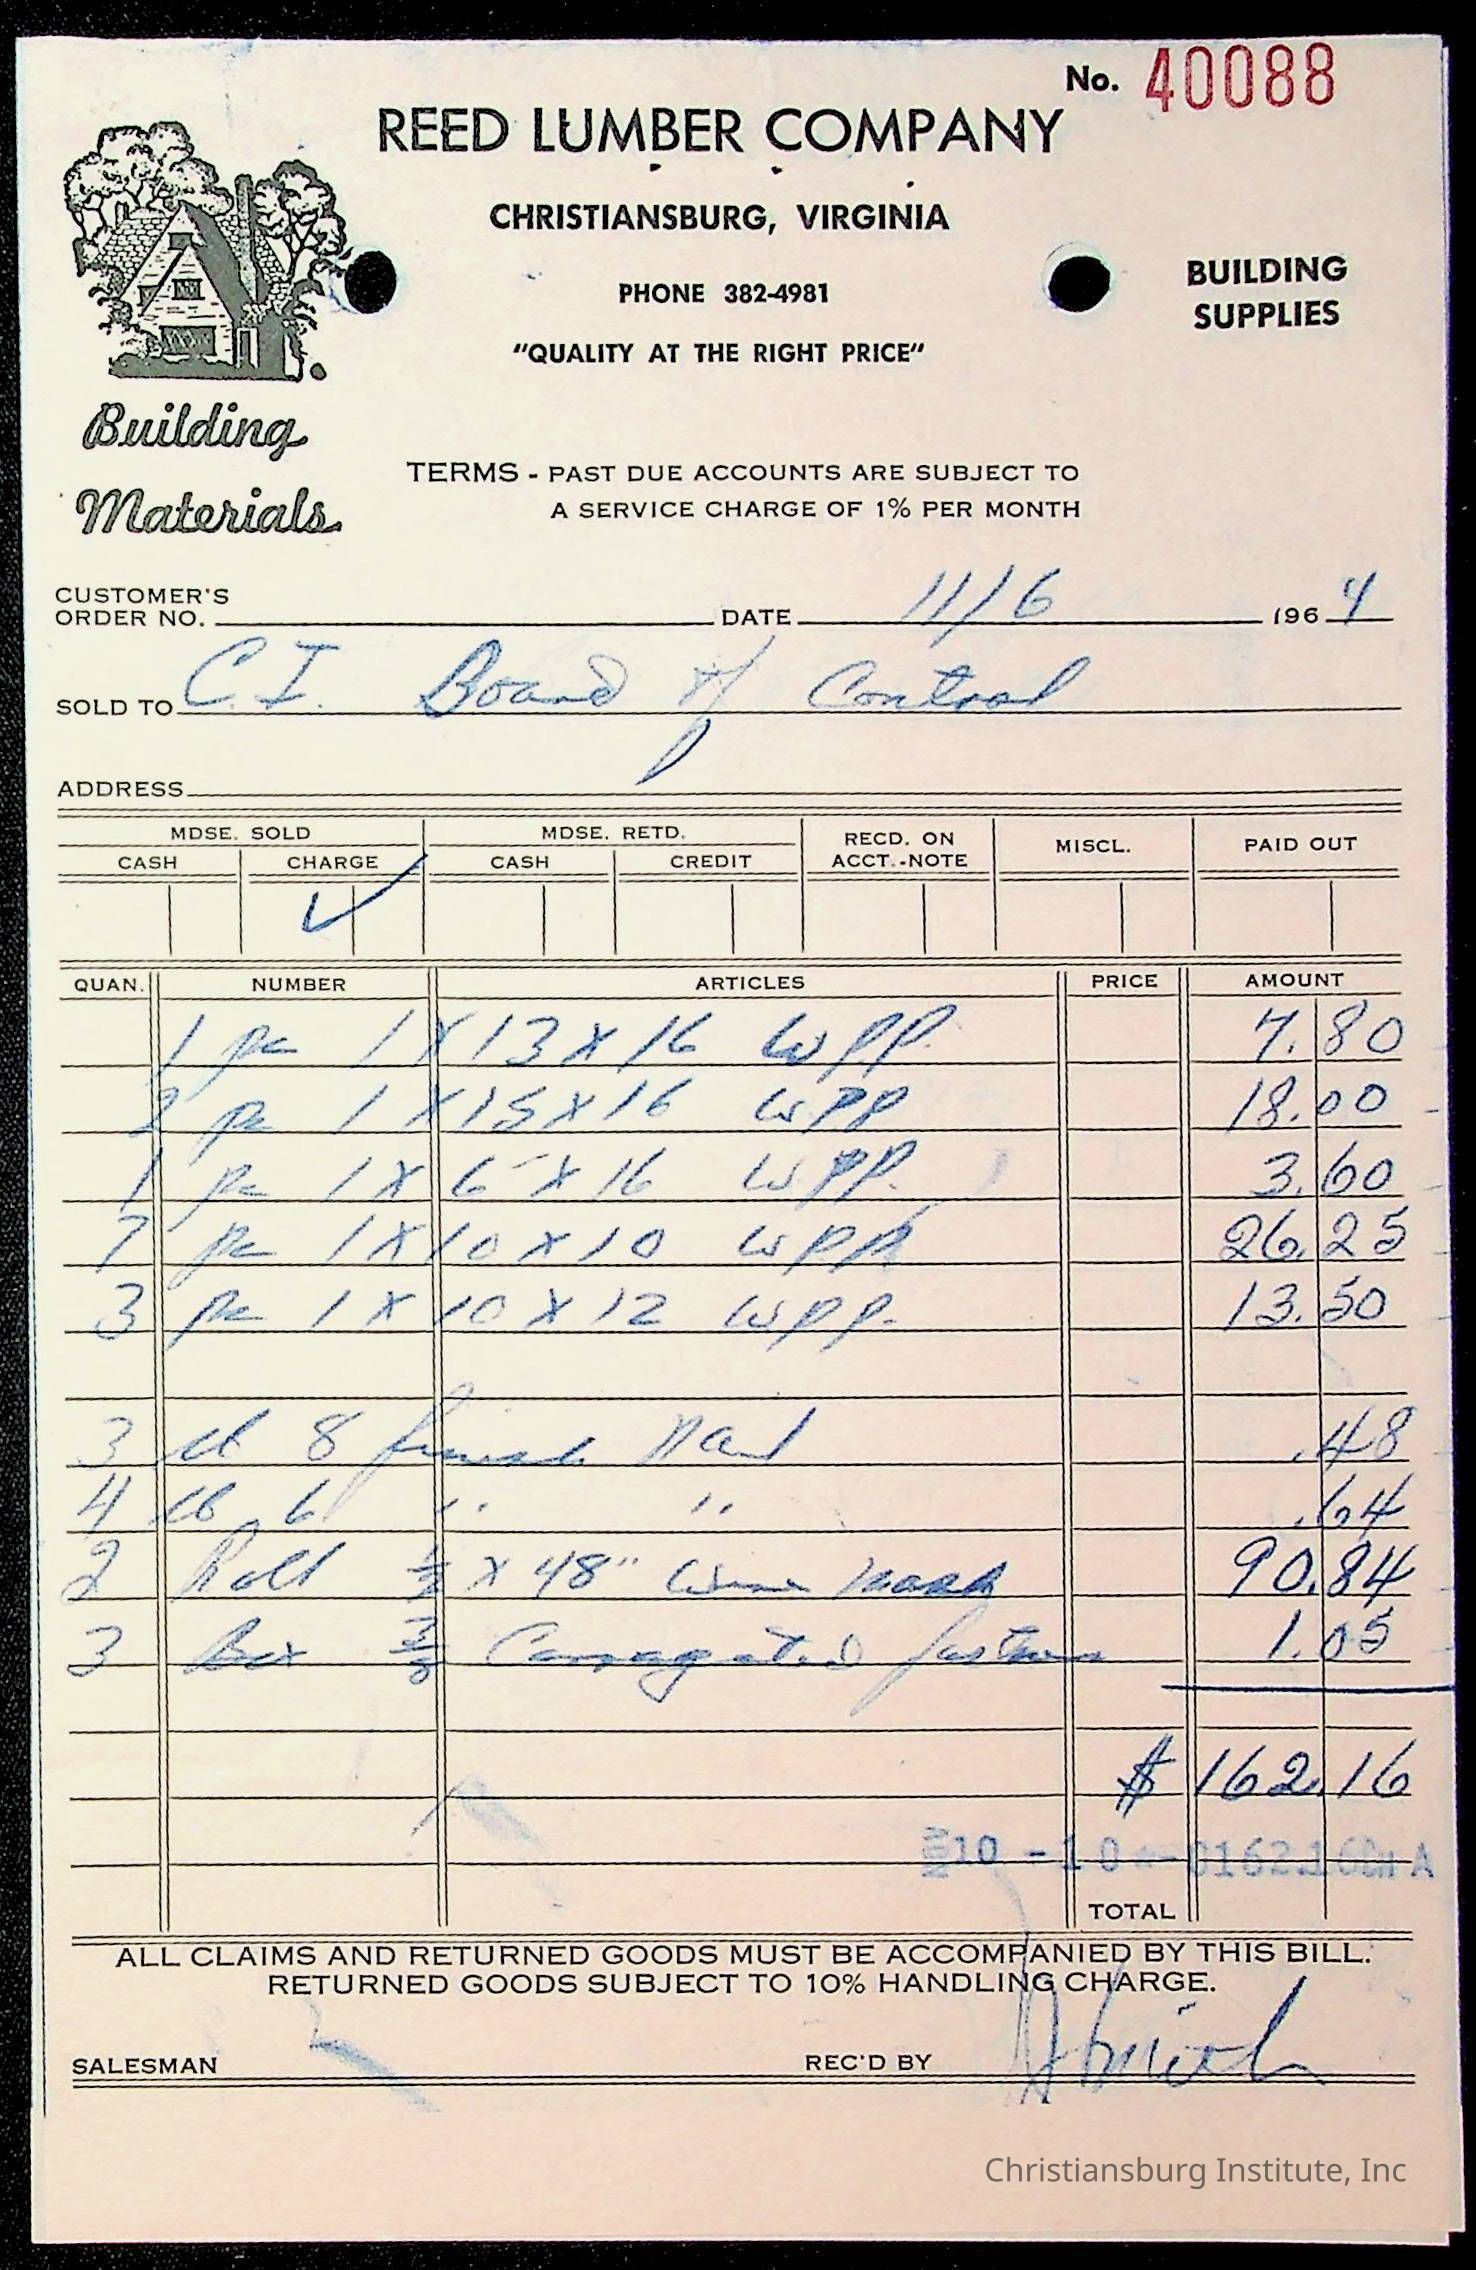 No. 40088
REED LUMBER COMPANY
CHRISTIANSBURG, VIRGINIA
PHONE 382-4981
BUILDING
SUPPLIES
"QUALITY AT THE RIGHT PRICE"
Building
Materials
TERMS - PAST DUE ACCOUNTS ARE SUBJECT TO
A SERVICE CHARGE OF 1% PER MONTH
CUSTOMER'S
ORDER NO. DATE 11/6 1964
SOLD TO C.I. Board of Control
ADDRESS
MDSE. SOLD MDSE. RETD. RECD. ON ACCT.-NOTE MISCL. PAID OUT
CASH CHARGE CASH CREDIT
✓
QUAN. NUMBER ARTICLES PRICE AMOUNT
1 pc 1 X 13 X 16 WPP. 7.80
2 pc 1 X 15 X 16 WPP 18.00
1 pc 1 X 6 X 16 WPP. 3.60
7 pc 1 X 10 X 10 WPP 26.25
3 pc 1 X 10 X 12 WPP. 13.50
3 lb 8 finish Nail .48
4 lb 6 " " .64
2 Roll 1/2 X 48" Wire 90.84
3 Box 3/8 Corragated fastners 1.05
$ 162.16
10 -10 0162.16 A
TOTAL
ALL CLAIMS AND RETURNED GOODS MUST BE ACCOMPANIED BY THIS BILL.
RETURNED GOODS SUBJECT TO 10% HANDLING CHARGE.
SALESMAN REC'D BY
Christiansburg Institute, Inc